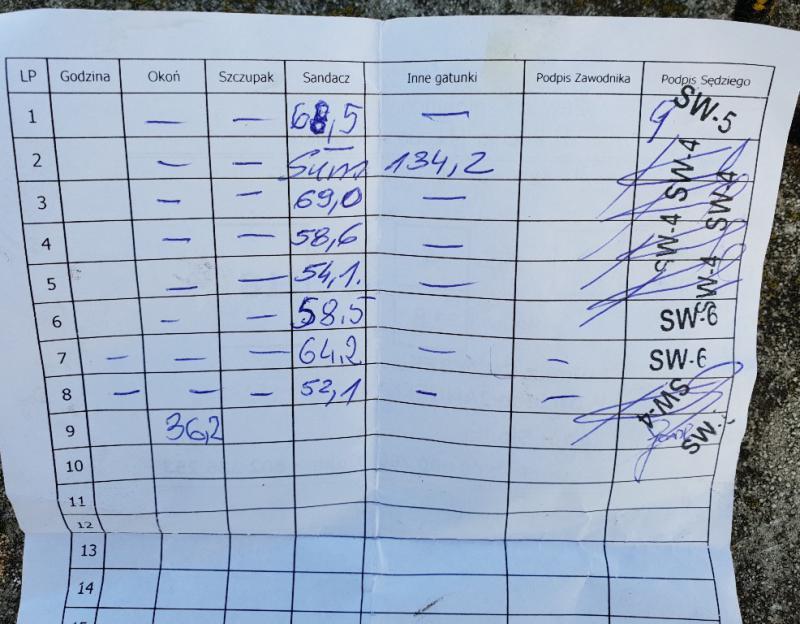 LP Godzina Okoń Szczupak Sandacz Inne gatunki Podpis Zawodnika Podpis Sędziego
1 — — 68,5 — SW-5
2 — — Sum 134,2 SW-4
3 — — 69,0 — SW-4
4 — — 58,6 — SW-4
5 — — 54,1. — SW-4
6 — — 58,5 SW-6
7 — — — 64,2 — — SW-6
8 — — — 52,1 — — SW-4
9 36,2 SW-
10
11
12
13
14